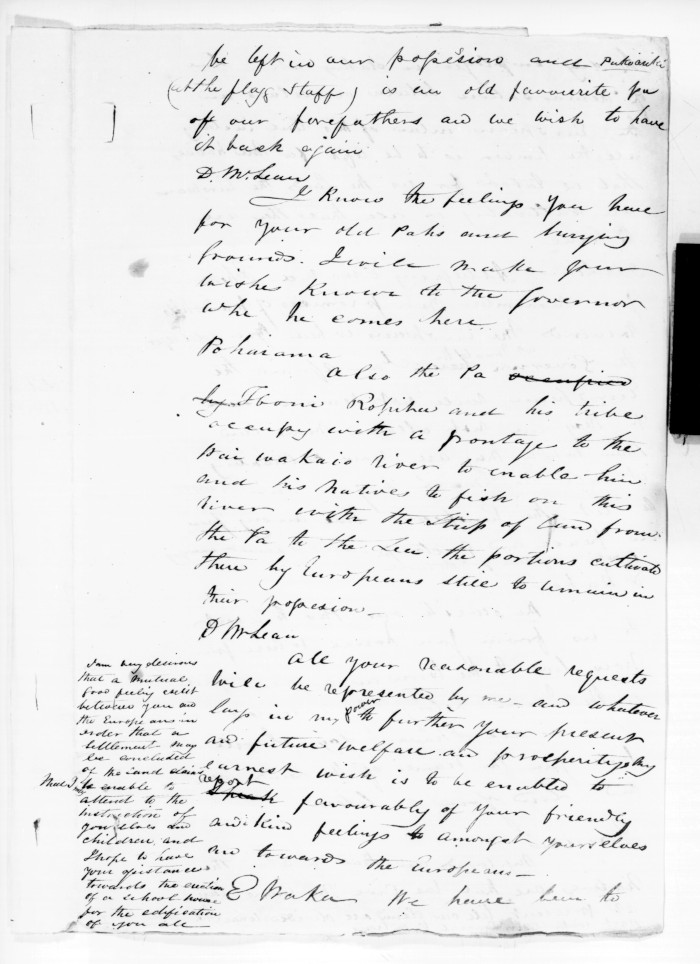 be left in our possession and Pukiariki
(at the flagg staff) is an old favourite pa
of our forefathers and we wish to have
it back again
D. McLean
I know the feelings you have
for your old Pahs and burying
Grounds. I will make your
wishes known to the Governor
whe he comes here
Poharama
also the Pa occupied
by Eboni Ropiha and his tribe
occupy with a frontage to the
river to enable him
and his Natives to fish on this
river with the strip of land from
the Pa to the Sea. the portions cultivate
there by Europeans still to remain in
their possession_
D McLean
all your reasonable requests
will be represented by me_ and whatever
lays in my power to further your present
and future welfare and prosperity, my
earnest wish is to be enabled to
report favourably of your friendly
and kind feelings to amongst yourselves
and towards the Europeans_
E Waka We have been to
I am very desirous
that a mutual
good feeling exist
between you and
the Europeans in
order that a
settlement may
be concluded
of the land claims
that I may be enable to
attend to the
instruction of
yourselves and
children and
I hope to have
your assistance
towards the erection
of a school house
for the edification
of you all